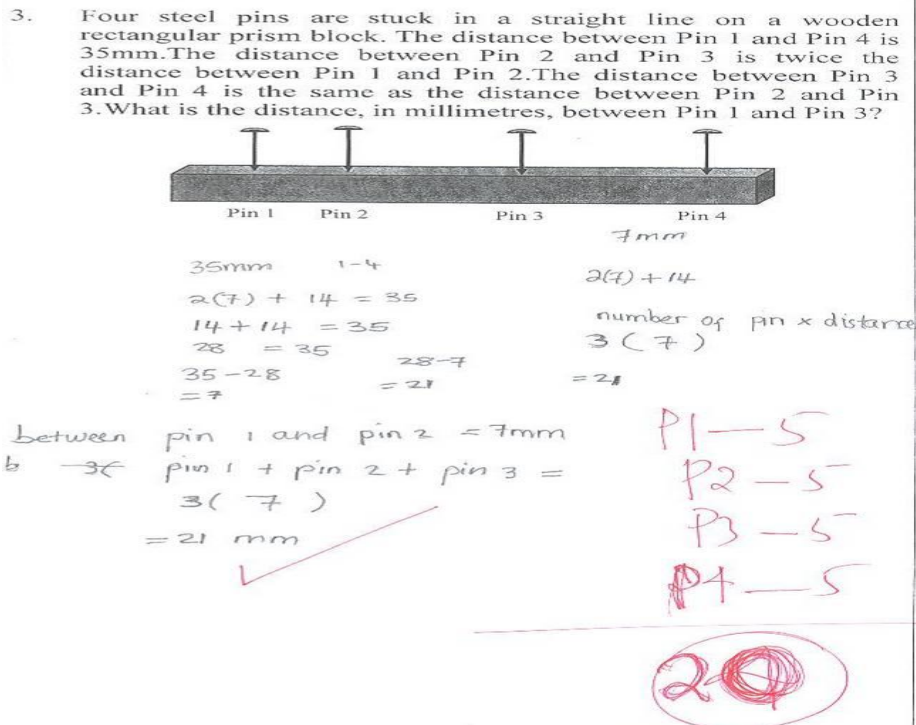 3. Four steel pins are stuck in a straight line on a wooden
rectangular prism block. The distance between Pin 1 and Pin 4 is
35mm.The distance between Pin 2 and Pin 3 is twice the
distance between Pin 1 and Pin 2.The distance between Pin 3
and Pin 4 is the same as the distance between Pin 2 and Pin
3.What is the distance, in millimetres, between Pin 1 and Pin 3?
Pin 1 Pin 2 Pin 3 Pin 4
7mm
35mm 1-4
2(7) + 14 = 35
14 + 14 = 35
28 = 35
35 - 28
= 7
28-7
= 21
2(7) + 14
number of pin x distance
3 ( 7 )
= 21
between pin 1 and pin 2 = 7mm
pin 1 + pin 2 + pin 3 =
3( 7 )
= 21 mm
P1 — 5
P2 — 5
P3 — 5
P4 — 5